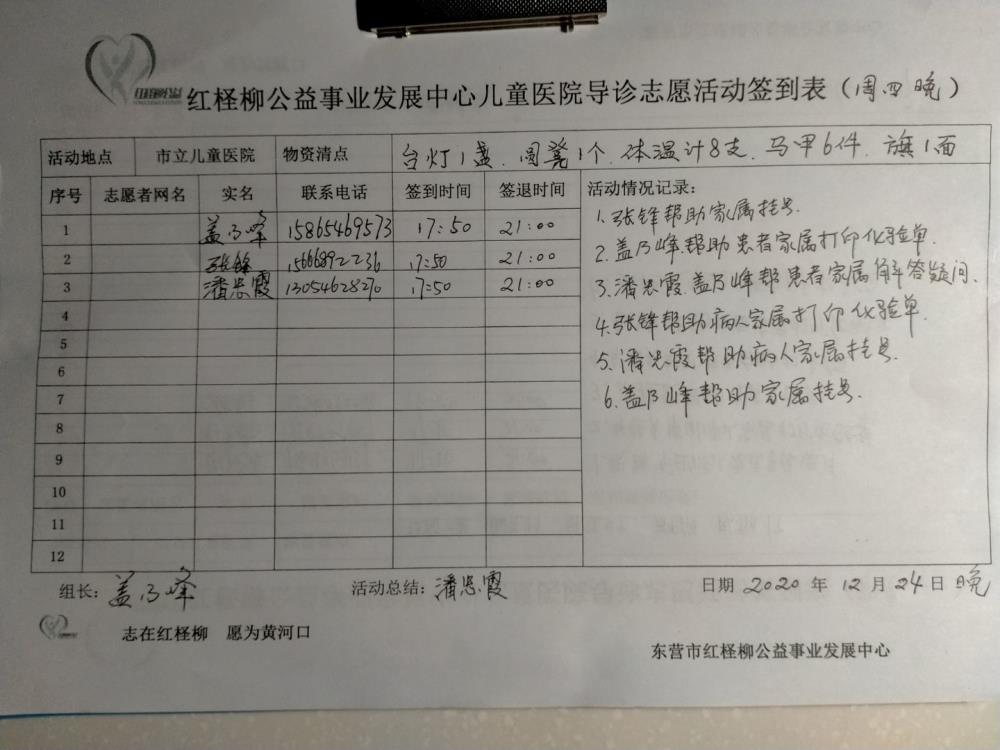 红柽柳公益事业发展中心儿童医院导诊志愿活动签到表（周四晚）
活动地点 市立儿童医院 物资清点 台灯1盏. 圆凳1个. 体温计8支. 马甲6件. 旗1面
序号 志愿者网名 实名 联系电话 签到时间 签退时间 活动情况记录:
1 盖乃峰 15865469573 17:50 21:00
2 张锋 15666892236 17:50 21:00
3 潘忠霞 13054628270 17:50 21:00
4
5
6
7
8
9
10
11
12
1. 张锋帮助家属挂号.
2. 盖乃峰帮助患者家属打印化验单.
3. 潘忠霞.盖乃峰帮患者家属解答疑问.
4. 张锋帮助病人家属打印化验单.
5. 潘忠霞帮助病人家属挂号.
6. 盖乃峰帮助家属挂号.
组长: 盖乃峰 活动总结: 潘忠霞 日期 2020 年 12 月 24 日 晚
志在红柽柳 愿为黄河口
东营市红柽柳公益事业发展中心